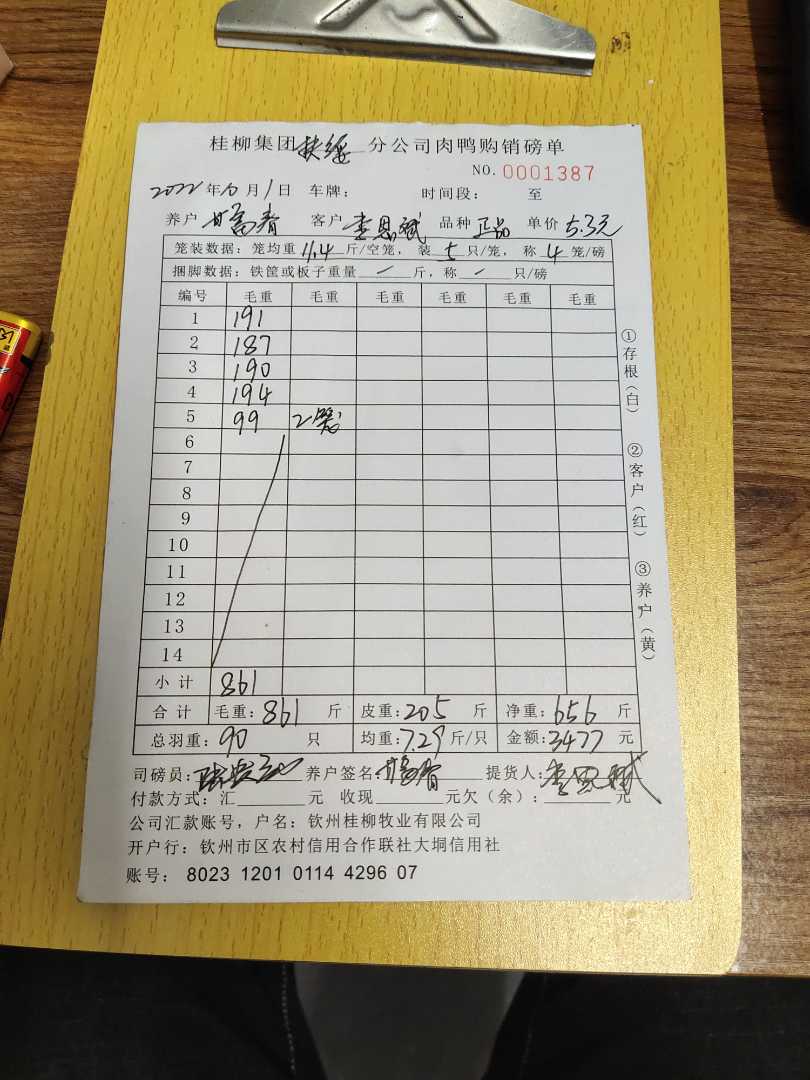 桂柳集团扶绥分公司肉鸭购销磅单
NO. 0001387
2022年10月1日 车牌： 时间段： 至
养户 甘富春 客户 李恩斌 品种 正品 单价 5.3元
笼装数据：笼均重11.4斤/空笼，装5只/笼，称4笼/磅
捆脚数据：铁筐或板子重量/斤，称/只/磅
编号 毛重 毛重 毛重 毛重 毛重 毛重
1 191
2 187
3 190
4 194
5 99 2笼
6
7
8
9
10
11
12
13
14
小计 861
合计 毛重：861斤 皮重：205斤 净重：656斤
总羽重：90只 均重：7.29斤/只 金额：3477元
司磅员： 养户签名 甘富春 提货人：李恩斌
付款方式：汇 元 收现 元欠（余）： 元
公司汇款账号，户名：钦州桂柳牧业有限公司
开户行：钦州市区农村信用合作联社大垌信用社
账号： 8023 1201 0114 4296 07
①存根（白）
②客户（红）
③养户（黄）